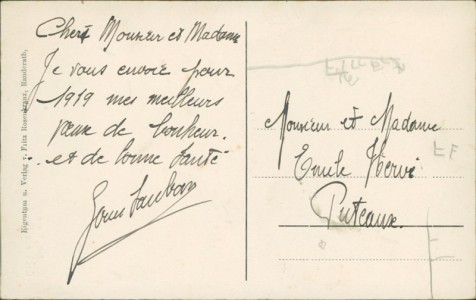 Chers Monsieur et Madame
Je vous envoie pour
1919 mes meilleurs
vœux de bonheur.
et de bonne santé
Monsieur et Madame
Emile Hervé
Puteaux.
EF
E
Eigentum u. Verlag v. Fritz Randerath,